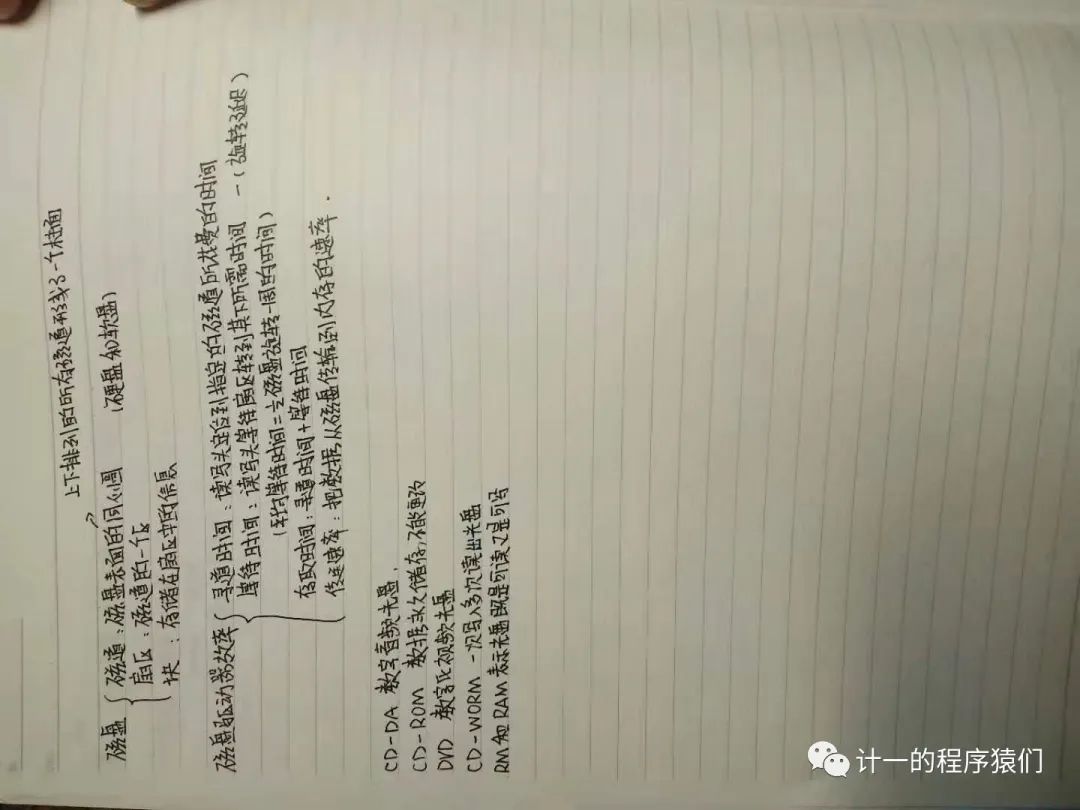 上下排列的所有磁道形成了一个柱面
磁盘 { 磁道：磁盘表面的同心圆 （硬盘和软盘）
扇区：磁道的一个区
块：存储在扇区中的信息
磁盘驱动器效率 { 寻道时间：读写头定位到指定的磁道所花费的时间
等待时间：读写头等待扇区转到其下所需时间 —（旋转延迟）
（平均等待时间=½磁盘旋转一周的时间）
存取时间：寻道时间+等待时间
传送速率：把数据从磁盘传输到内存的速率.
CD-DA 数字音频光盘.
CD-ROM 数据永久储存,不能更改
DVD 数字化视频光盘
CD-WORM 一次写入多次读出光盘
RW和RAM表示光盘既是可读又是可写
计一的程序猿们